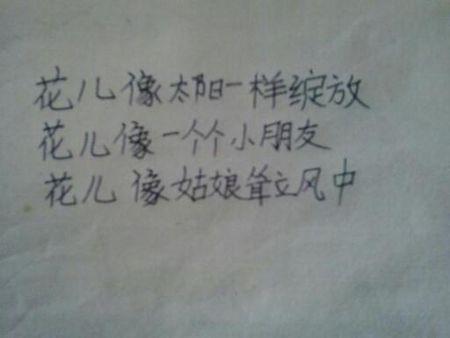 花儿像太阳一样绽放
花儿像一个个小朋友
花儿像姑娘耸立风中